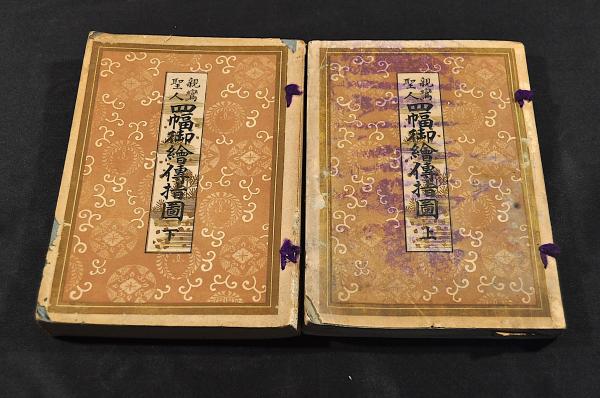 親鸞
聖人
四幅御繪傳指圖
上
親鸞
聖人
四幅御繪傳指圖
下